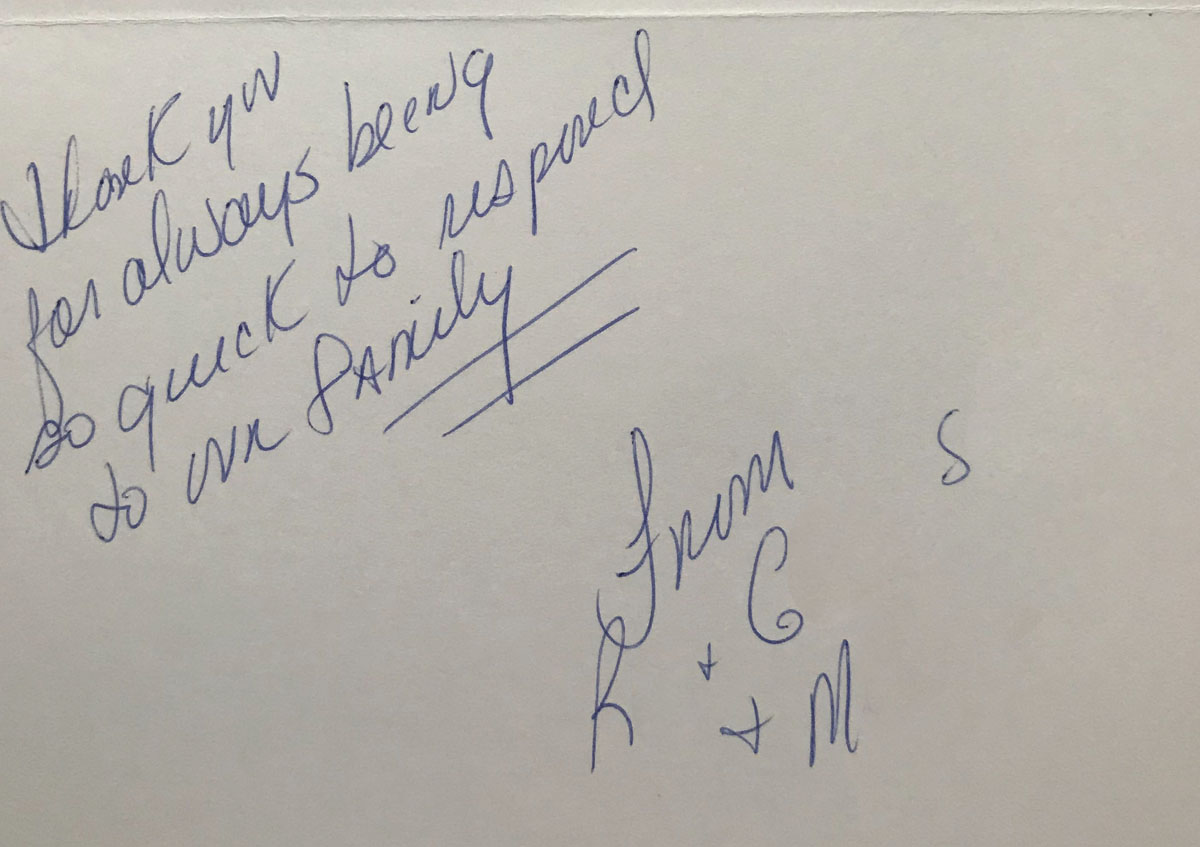 Thank you
for always being
so quick to respond
to our family
From S
C
R +
+ M